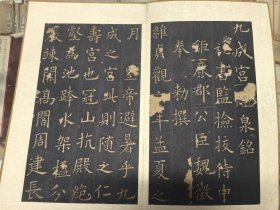 九成宮醴泉銘
祕書監撿挍侍中
鉅鹿郡公臣魏徵
奉勅撰
維貞觀六年孟夏之
月皇帝避暑乎九
成之宮此則隨之仁
壽宮也冠山抗殿絕
壑為池跨水架楹分
巖竦闕高閣周建長